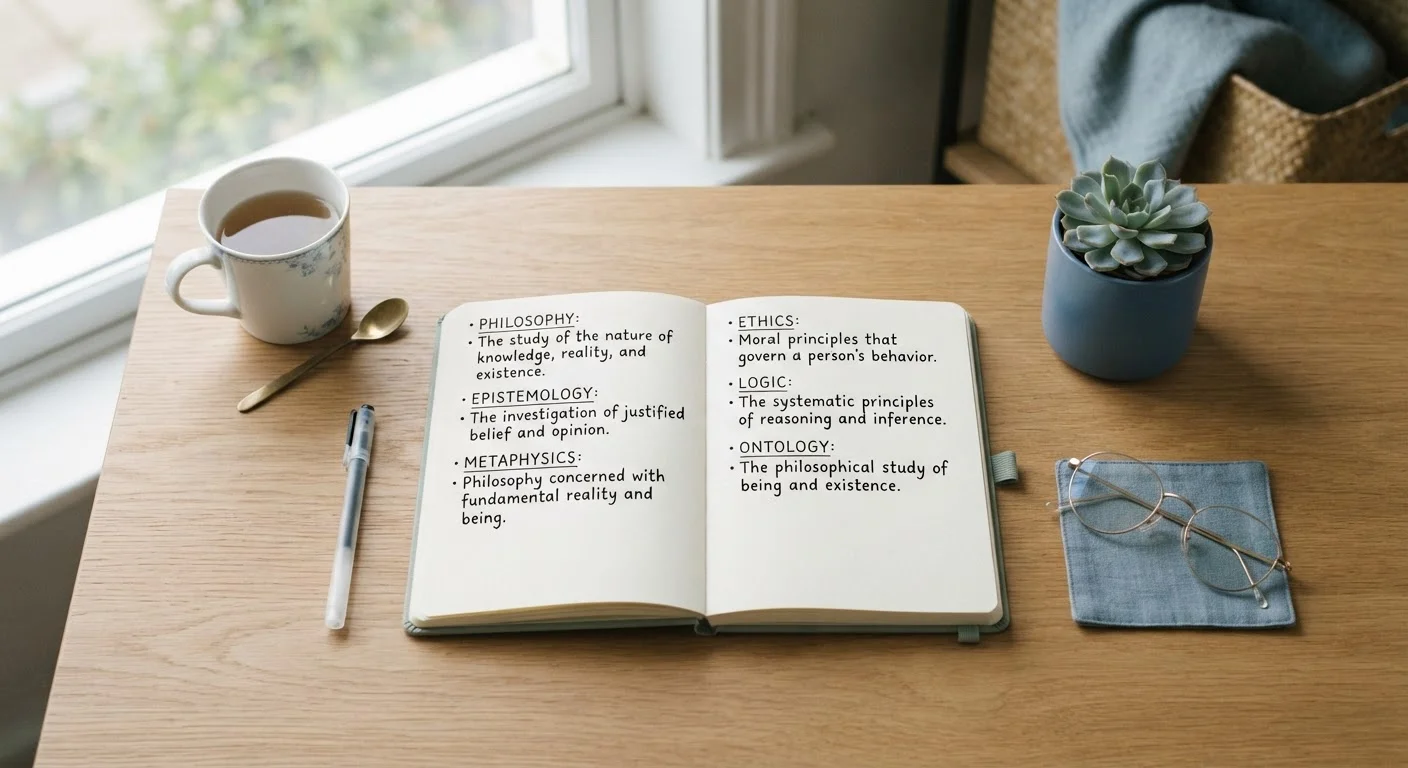 • PHILOSOPHY:
• The study of the nature of
knowledge, reality, and
existence.
• EPISTEMOLOGY:
• The investigation of justified
belief and opinion.
• METAPHYSICS:
• Philosophy concerned with
fundamental reality and
being.
• ETHICS:
• Moral principles that
govern a person's behavior.
• LOGIC:
• The systematic principles
of reasoning and inference.
• ONTOLOGY:
• The philosophical study of
being and existence.